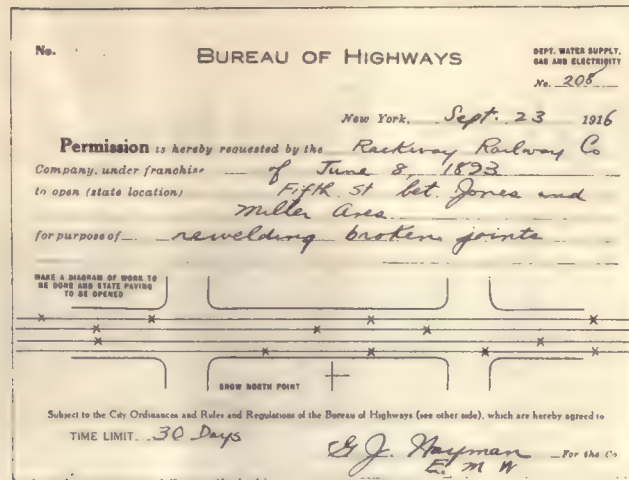 No.
BUREAU OF HIGHWAYS
DEPT. WATER SUPPLY,
GAS AND ELECTRICITY
No. 208
New York, Sept. 23 1916
Permission is hereby requested by the Rackway Railway Co
Company, under franchise of June 8, 1893
to open (state location) Fifth St bet. Jones and
Miller Aves
for purpose of rewelding broken joints
MAKE A DIAGRAM OF WORK TO
BE DONE AND STATE PAVING
TO BE OPENED
SHOW NORTH POINT
Subject to the City Ordinances and Rules and Regulations of the Bureau of Highways (see other side), which are hereby agreed to
TIME LIMIT 30 Days
G J. Hayman For the Co
E. M W